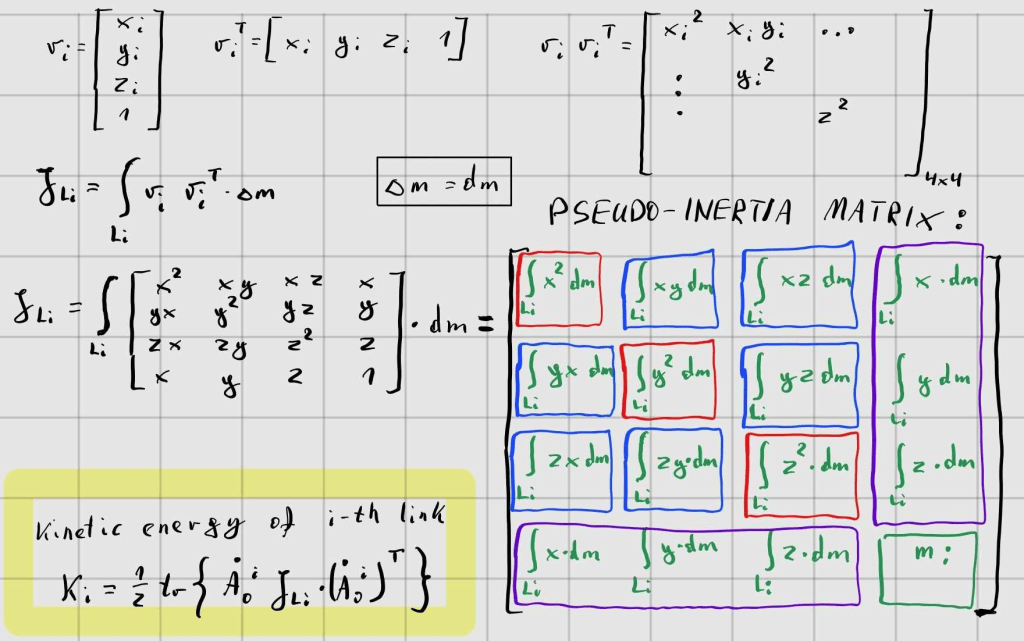 vᵢ = [xᵢ yᵢ zᵢ 1]
vᵢᵀ = [xᵢ yᵢ zᵢ 1]
vᵢ vᵢᵀ = [xᵢ² xᵢyᵢ ...
⋮ yᵢ²
z²]4×4
J_Li = ∫_Li vᵢ vᵢᵀ · Δm
Δm = dm
PSEUDO-INERTIA MATRIX:
J_Li = ∫_Li [x² xy xz x
yx y² yz y
zx zy z² z
x y z 1] · dm =
[∫_Li x² dm ∫_Li xy dm ∫_Li xz dm ∫_Li x · dm
∫_Li yx dm ∫_Li y² dm ∫_Li yz dm ∫_Li y dm
∫_Li zx dm ∫_Li zy · dm ∫_Li z² · dm ∫_Li z · dm
∫_Li x · dm ∫_Li y · dm ∫_Li z · dm mᵢ]
Kinetic energy of i-th link
Kᵢ = 1/2 tr{Ȧ₀ⁱ J_Li · (Ȧ₀ⁱ)ᵀ}